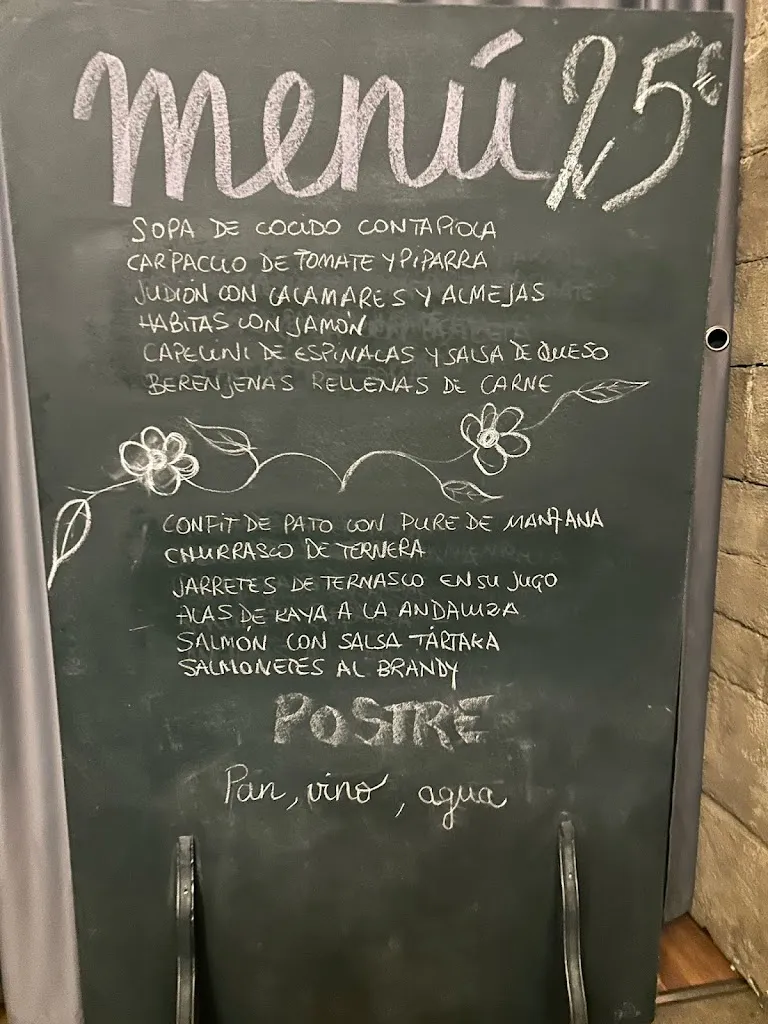 menú 25€
SOPA DE COCIDO CON TAPIOCA
CARPACCIO DE TOMATE Y PIPARRA
JUDIÓN CON CALAMARES Y ALMEJAS
HABITAS CON JAMÓN
CAPELLINI DE ESPINACAS Y SALSA DE QUESO
BERENJENAS RELLENAS DE CARNE
CONFIT DE PATO CON PURE DE MANZANA
CHURRASCO DE TERNERA
JARRETES DE TERNASCO EN SU JUGO
ALAS DE RAYA A LA ANDALUZA
SALMÓN CON SALSA TÁRTARA
SALMONETES AL BRANDY
POSTRE
Pan, vino, agua